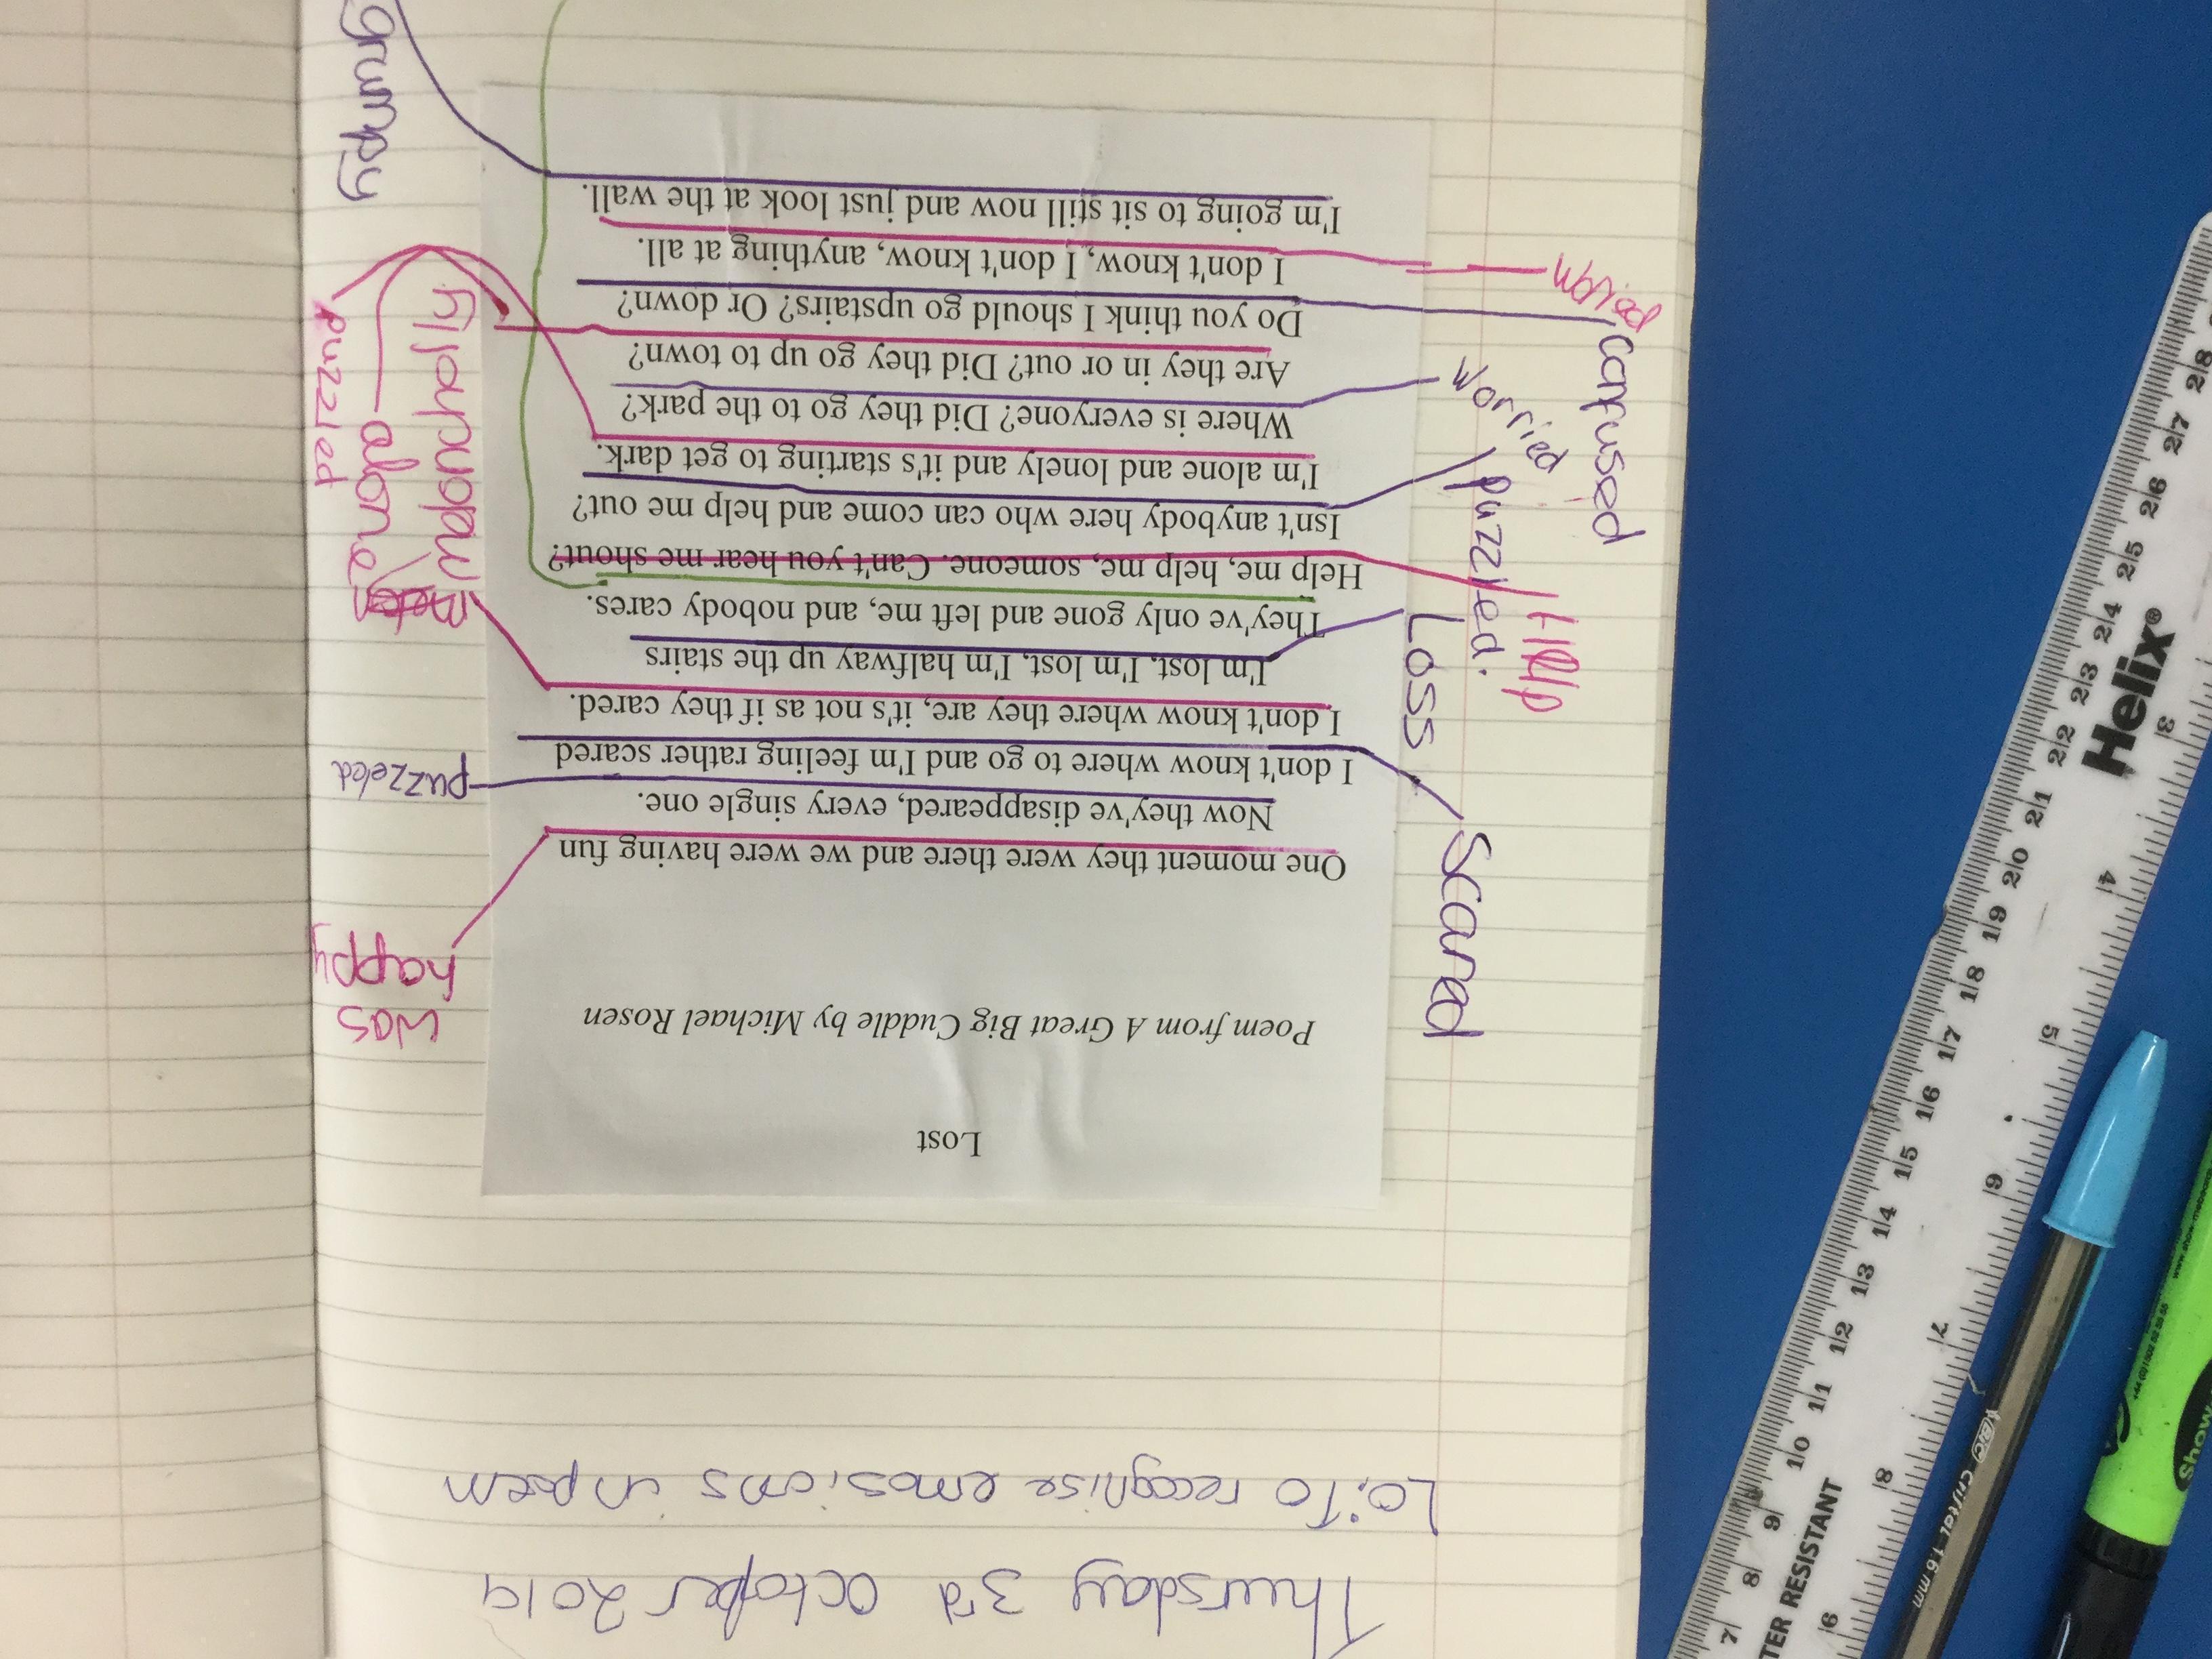 Thursday 3rd October 2019
Lo: To recognise emosions in poem
Lost
Poem from A Great Big Cuddle by Michael Rosen
One moment they were there and we were having fun
Now they've disappeared, every single one.
I don't know where to go and I'm feeling rather scared
I don't know where they are, it's not as if they cared.
I'm lost, I'm lost, I'm halfway up the stairs
They've only gone and left me, and nobody cares.
Help me, help me, someone. Can't you hear me shout?
Isn't anybody here who can come and help me out?
I'm alone and lonely and it's starting to get dark.
Where is everyone? Did they go to the park?
Are they in or out? Did they go up to town?
Do you think I should go upstairs? Or down?
I don't know, I don't know, anything at all.
I'm going to sit still now and just look at the wall.
was
happy
puzzeled
alone
puzzled
grumpy
Scared
Loss
Help
puzzled.
Worried
confused
Worried
Helix®
TER RESISTANT
7 8 9 10 11 12 13 14 15 16 17 18 19 20 21 22 23 24 25 26 27 28
9 8 7 6 5 4 3
BIC cristal 1.6 mm
Show